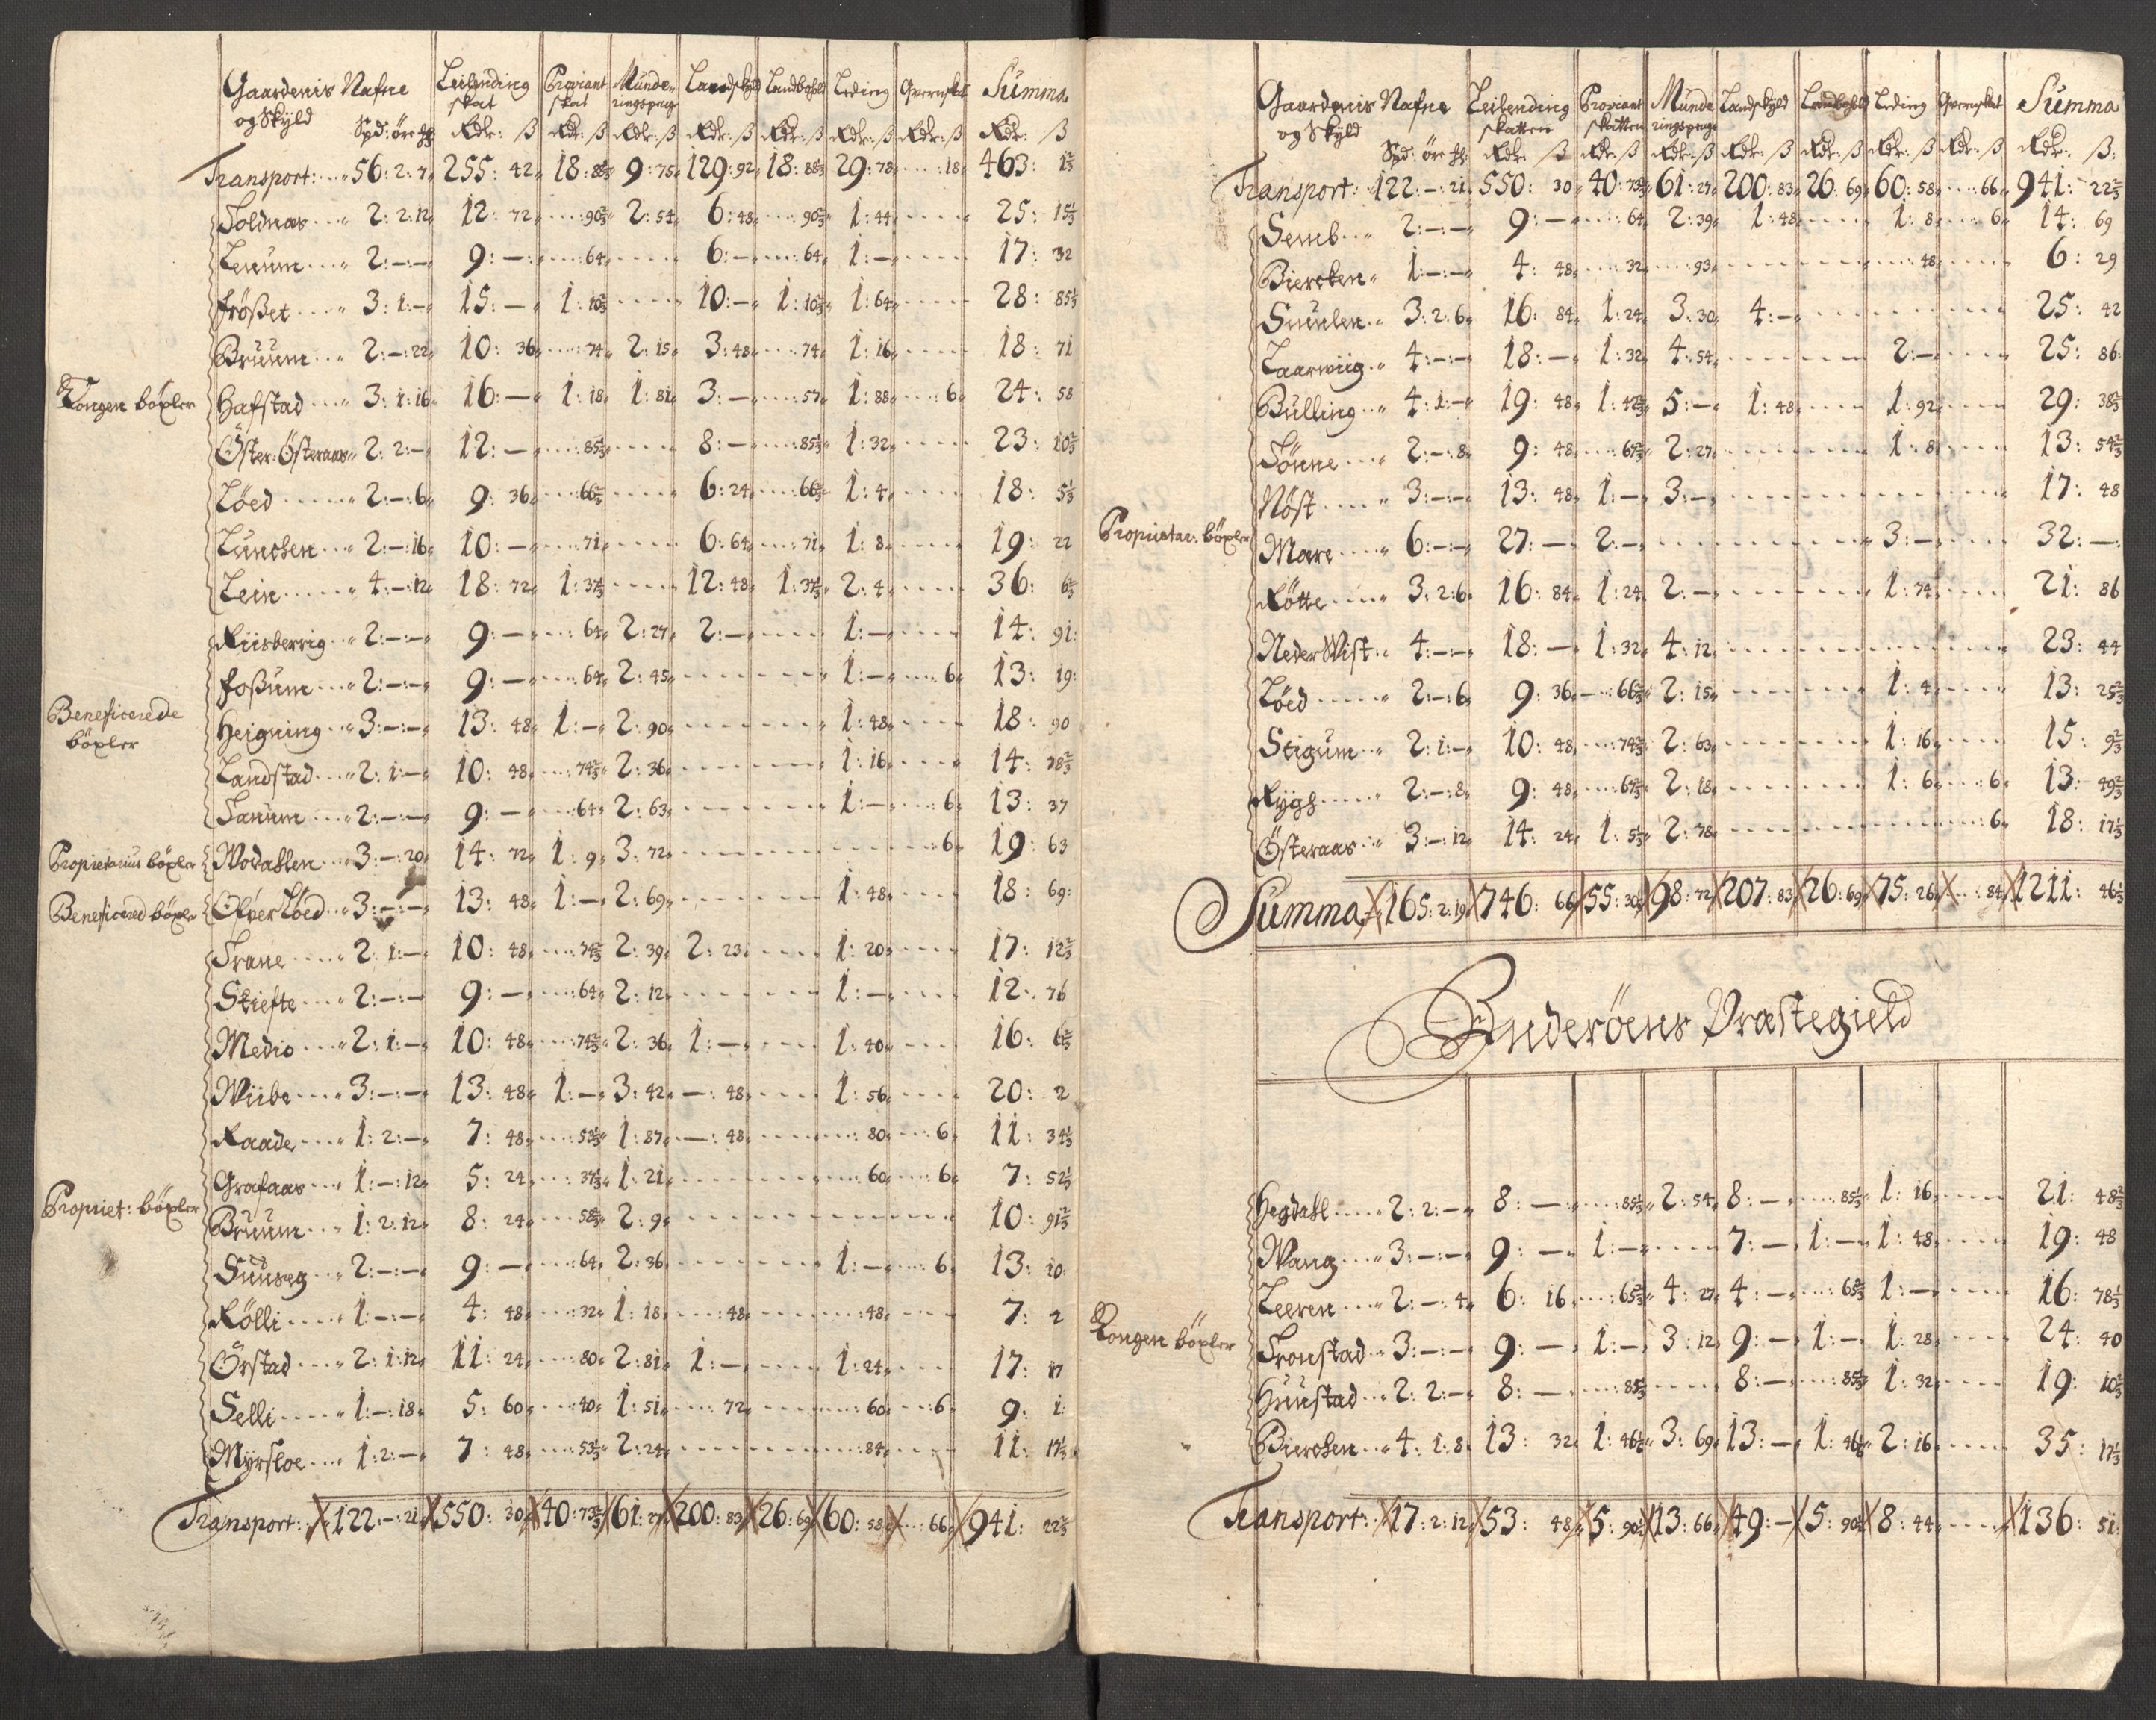 Gaardenis Nafne Leilending Proviant Munde- Landskyld Landbohold Leding Qvernskat Summa
og Skÿld skat skat ringspenge
Spd: öre Rdr: ß Rdr: ß Rdr: ß Rdr: ß Rdr: ß Rdr: ß Rdr: ß Rdr: ß
Transport: 56: 2: 7 255: 42 18: 8 9: 75 129: 92 18: 88 29: 78 18 463:
Soldnas 2: 2: 12 12: 72 90 2/3 2: 54 6: 48 90 2/3 1: 44 25: 15 1/3
Lenum 2: —: — 9: — 64 6: — 64 1: — 17: 32
Frößet 3: 1: — 15: — 1: 10 2/3 10: — 1: 10 2/3 1: 64 28: 85 1/3
Bruum 2: —: 22 10: 36 74 2: 15 3: 48 74 1: 16 18: 71
Kongen böxler Hafstad 3: 1: 16 16: — 1: 18 1: 81 3: — 57 1: 88 6 24: 58
Öster: Österaas 2: 2: — 12: — 85 1/3 8: — 85 1/3 1: 32 23: 10 2/3
Löed 2: —: 6 9: 36 66 2/3 6: 24 66 2/3 1: 4 18: 5 1/3
Lunchen 2: —: 16 10: — 71 6: 64 71 1: 8 19: 22
Lein 4: —: 12 18: 72 1: 37 1/3 12: 48 1: 37 1/3 2: 4 36: 6 2/3
Riisberrig 2: —: — 9: — 64 2: 27 2: — 1: — 14: 91
Foßum 2: —: — 9: — 64 2: 45 1: — 6 13: 19
Beneficerede Heigning 3: —: — 13: 48 1: — 2: 90 1: 48 18: 90
böxler
Landstad 2: 1: — 10: 48 74 2/3 2: 36 1: 16 14: 78 2/3
Sanum 2: —: — 9: — 64 2: 63 1: — 6 13: 37
Propietarius böxler Wodahlen 3: —: 20 14: 72 1: 9 3: 72 6 19: 63
Beneficered böxler Ofver Löed 3: —: — 13: 48 1: — 2: 69 1: 48 18: 69
Trane 2: 1: — 10: 48 74 2/3 2: 39 2: 23 1: 20 17: 12 2/3
Skiefte 2: —: — 9: — 64 2: 12 1: — 12: 76
Medio 2: 1: — 10: 48 74 2/3 2: 36 1: — 1: 40 16: 6 2/3
Wiibe 3: —: — 13: 48 1: — 3: 42 —: 48 1: 56 20: 2
Raade 1: 2: — 7: 48 53 1/3 1: 87 —: 48 80 6 11: 34 1/3
Grafaas 1: —: 12 5: 24 37 1/3 1: 21 60 6 7: 52 1/3
Propriet: böxler Bruum 1: 2: 12 8: 24 58 2/3 2: 9 10: 91 2/3
Suuseg 2: —: — 9: — 64 2: 36 1: — 6 13: 10
Rölli 1: —: — 4: 48 32 1: 18 48 48 7: 2
Örstad 2: 1: 12 11: 24 80 2: 81 1: — 1: 24 17: 17
Selli 1: —: 18 5: 60 40 1: 51 72 60 6 9: 1
Myrsloe 1: 2: — 7: 48 53 1/3 2: 24 84 11: 17 1/3
Transport: 122: —: 21 550: 30 40: 73 2/3 61: 27 200: 83 26: 69 60: 58 66 941: 22 2/3
Gaardenis Nafne Leilending Proviant Munde Landskyld Landbohold Leding Qvernskat Summa
og Skÿld skatten skatten ringspenge
Spd: öre Rdr: ß Rdr: ß Rdr: ß Rdr: ß Rdr: ß Rdr: ß Rdr: ß Rdr: ß:
Transport: 122: —: 21 550: 30 40: 73 2/3 61: 27 200: 83 26: 69 60: 58 66 941: 22 2/3
Semb 2: —: — 9: — 64 2: 39 1: 48 1: 8 6 14: 69
Biercken 1: —: — 4: 48 32 93 48 6: 29
Suulen 3: 2: 6 16: 84 1: 24 3: 30 4: — 25: 42
Laarwiig 4: —: — 18: — 1: 32 4: 54 2: — 25: 86
Bulling 4: 1: — 19: 48 1: 42 2/3 5: — 1: 48 1: 92 29: 38 2/3
Sönne 2: —: 8 9: 48 67 2/3 2: 27 1: 8 13: 54 2/3
Nöst 3: —: — 13: 48 1: — 3: — 17: 48
Proprietar: böxler Mare 6: —: — 27: — 2: — 3: — 32: —
Rötte 3: 2: 6 16: 84 1: 24 2: — 1: 74 21: 86
Neder Wist 4: —: — 18: — 1: 32 4: 12 23: 44
Löed 2: —: 6 9: 36 66 2/3 2: 15 1: 4 13: 25 2/3
Stigum 2: 1: — 10: 48 74 2/3 2: 63 1: 16 15: 9 2/3
Rygh 2: —: 8 9: 48 67 2/3 2: 18 1: 6 6 13: 49 2/3
Österaas 3: —: 12 14: 24 1: 5 1/3 2: 78 6 18: 17 1/3
Summa 165: 2: 19 746: 66 55: 30 98: 72 207: 83 26: 69 75: 26 84 1211: 46 1/3
Inderöens Præstegield
Hegdahl 2: 2: — 8: — 85 1/3 2: 54 8: — 85 1/3 1: 16 21: 48 2/3
Wang 3: —: — 9: — 1: — 7: — 1: — 1: 48 19: 48
Leeren 2: —: 4 6: 16 65 2/3 4: 27 4: — 65 2/3 1: — 16: 78 1/3
Kongen böxler Tronstad 3: —: — 9: — 1: — 3: 12 9: — 1: — 1: 28 24: 40
Huustad 2: 2: — 8: — 85 1/3 8: — 85 1/3 1: 32 19: 10 2/3
Bierchen 4: 1: 8 13: 32 1: 46 3: 69 13: — 1: 46 2: 16 35: 17 1/3
Transport: 17: 2: 12 53: 48 5: 90 13: 66 49: — 5: 90 8: 44 136: 51